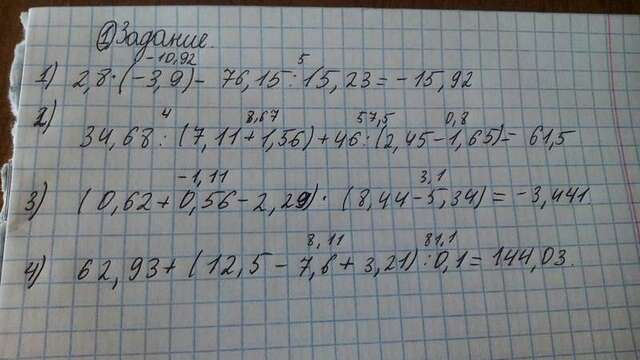 ① Задание.
-10,92 5
1) 2,8·(-3,9)- 76,15:15,23=-15,92
4 8,67 57,5 0,8
2) 34,68:(7,11+1,56)+46:(2,45-1,65)=61,5
-1,11 3,1
3) (0,62+0,56-2,29)·(8,44-5,34)=-3,441.
8,11 81,1
4) 62,93+(12,5-7,6+3,21):0,1=144,03.